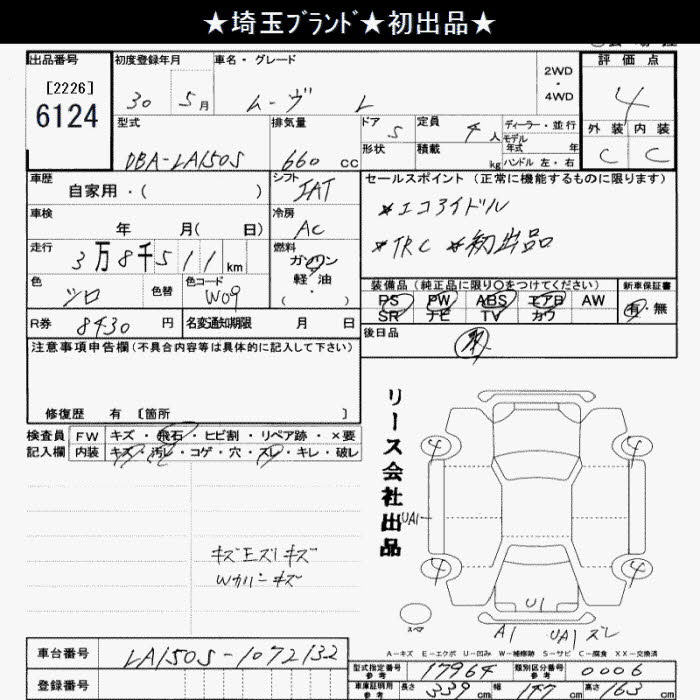 ★埼玉ﾌﾞﾗﾝﾄﾞ★初出品★
出品番号
[2226]
6124
初度登録年月
30 5月
車名・グレード
ムーヴ L
2WD
・
4WD
評価点
4
外装 内装
C C
型式
DBA-LA150S
排気量
660 cc
ドア 5
形状
定員 4人
積載 kg
ディーラー・並行
モデル年式 年
ハンドル 左・右
車歴
自家用・( )
シフト
IAT
セールスポイント (正常に機能するものに限ります)
*エコアイドル
*TRC *初出品
車検
年 月( 日)
冷房
AC
走行
3万8千511km
燃料
ガソリン
軽油
・( )
色
シロ
色替
色コード
W09
装備品(純正品に限り○をつけてください)
PS PW ABS エアB AW
SR ナビ TV カワ
新車保証書
有・無
R券 8430 円
名変通知期限 月 日
後日品
注意事項申告欄(不具合内容等は具体的に記入して下さい)
修復歴 有 〔箇所 〕
検査員
記入欄
FW キズ・飛石・ヒビ割・リペア跡・×要
内装 キズ・汚レ・コゲ・穴・スレ・キレ・破レ
リース会社出品
4 4
UA1
4 4
U1
A1 UA1 スレ
スペア
A-キズ E-エクボ U-凹み W-補修跡 S-サビ C-腐食 XX-交換済
車台番号 LA150S-1072132
登録番号
型式指定番号
参考
17964
類別区分番号
参考
0006
車庫証明用
参考
長さ 339 cm
幅 147 cm
高さ 163 cm